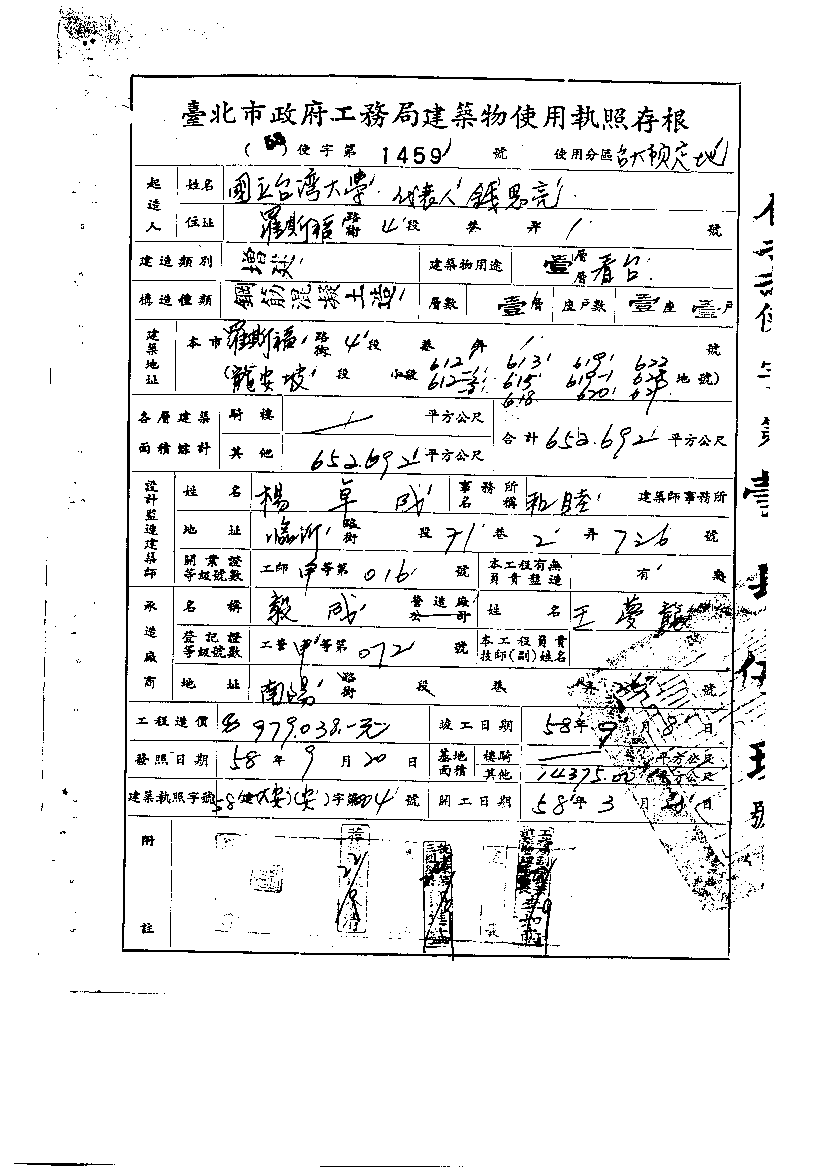 臺北市政府工務局建築物使用執照存根
(58)使字第 1459 號 使用分區 台大預定地
起造人 姓名 國立台湾大學 代表人 錢思亮
住址 羅斯福 路街 4 段 巷 弄 1 號
建造類別 增建 建築物用途 壹層 層 看台
構造種類 鋼筋混凝土造 層數 壹層 座戶數 壹座 壹戶
建築地址 本市 羅斯福 路街 4 段 巷 弄 1 號
(龍安坡 段 小段 612 613 619 622 地號)
615 619-1
618 620
各層建築面積總計 騎樓 平方公尺 合計 652.692 平方公尺
其他 652.692 平方公尺
設計監造建築師 姓名 楊卓成 事務所名稱 和睦 建築師事務所
地址 臨沂 路街 段 71 巷 2 弄 726 號
開業證等級號數 工師 甲 等第 016 號 本工程有無負責監造 有 無
承造廠商 名稱 毅成 營造廠公司 姓名 王夢龍
登記證等級號數 工營 甲 等第 072 號 本工程負責技師(副)姓名
地址 南陽 路街 段 巷 弄 號
工程造價 979.038.-元 竣工日期 58 年 9 月 8 日
發照日期 58 年 9 月 20 日 基地面積 樓騎 平方公尺
其他 14375.00 平方公尺
建築執照字號 58(建)(大安)(安)字第004 號 開工日期 58 年 3 月 日
附註